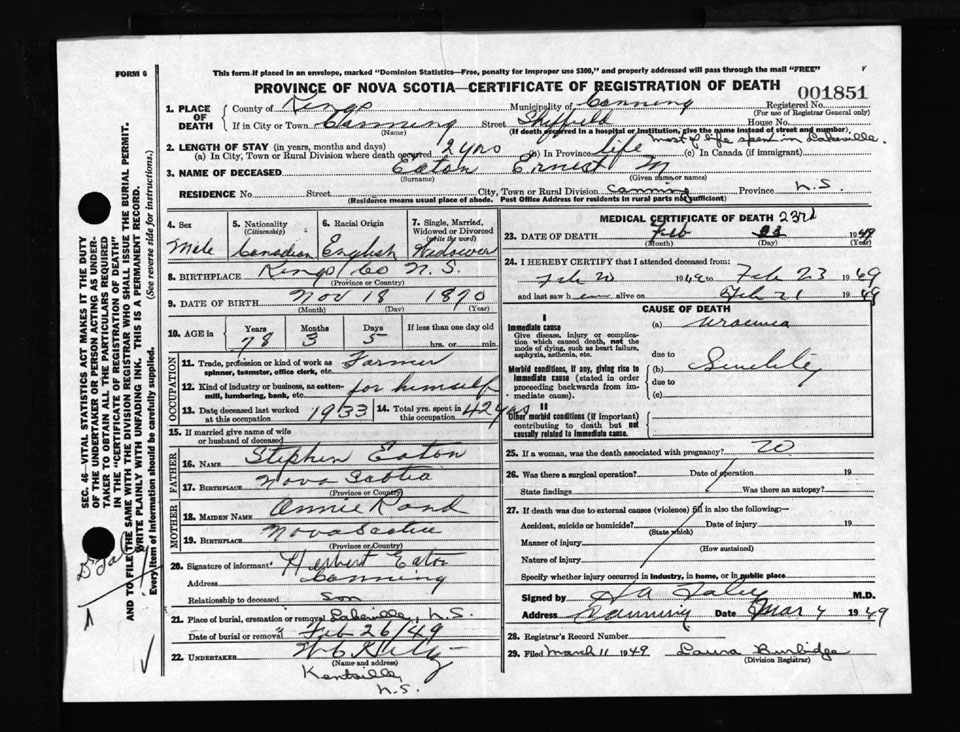 FORM 6
This form if placed in an envelope, marked "Dominion Statistics—Free, penalty for improper use $300," and properly addressed will pass through the mail "FREE"
PROVINCE OF NOVA SCOTIA—CERTIFICATE OF REGISTRATION OF DEATH
001851
1. PLACE OF DEATH
County of Kings Municipality of Canning Registered No.
(For use of Registrar General only)
If in City or Town Canning Street Sheffield House No.
(Name) (If death occurred in a hospital or institution, give the name instead of street and number)
most of life spent in Lakeville.
2. LENGTH OF STAY (in years, months and days)
(a) In City, Town or Rural Division where death occurred 2 yrs (b) In Province life (c) In Canada (if immigrant)
3. NAME OF DECEASED Eaton Ernest M
(Surname) (Given name or names)
RESIDENCE No. Street City, Town or Rural Division Canning Province N.S.
(Residence means usual place of abode. Post Office Address for residents in rural parts not sufficient)
4. Sex Male
5. Nationality (Citizenship) Canadian
6. Racial Origin English
7. Single, Married, Widowed or Divorced (write the word) Widower
8. BIRTHPLACE Kings Co N.S.
(Province or Country)
9. DATE OF BIRTH Nov 18 1870
(Month) (Day) (Year)
10. AGE in Years Months Days If less than one day old
78 3 5 hrs. or min.
OCCUPATION
11. Trade, profession or kind of work as spinner, teamster, office clerk, etc. Farmer
12. Kind of industry or business, as cotton-mill, lumbering, bank, etc. for himself
13. Date deceased last worked at this occupation 1933
14. Total yrs. spent in this occupation 42 yrs
15. If married give name of wife or husband of deceased
FATHER
16. NAME Stephen Eaton
17. BIRTHPLACE Nova Scotia
(Province or Country)
MOTHER
18. MAIDEN NAME Annie Rand
19. BIRTHPLACE Nova Scotia
(Province or Country)
20. Signature of informant Herbert Eaton
Address Canning
Relationship to deceased son
21. Place of burial, cremation or removal Lakeville, N.S.
Date of burial or removal Feb 26/49
22. UNDERTAKER
(Name and address)
Kentville,
N.S.
MEDICAL CERTIFICATE OF DEATH
23rd
23. DATE OF DEATH Feb 1949
(Month) (Day) (Year)
24. I HEREBY CERTIFY that I attended deceased from:
Feb 20 1949 to Feb 23 1949
and last saw h alive on Feb 21 1949
CAUSE OF DEATH
I
Immediate cause
Give disease, injury or complication which caused death, not the mode of dying, such as heart failure, asphyxia, asthenia, etc.
(a) uraemia
due to
Morbid conditions, if any, giving rise to immediate cause (stated in order proceeding backwards from immediate cause).
(b) Senility
due to
(c)
II
Other morbid conditions (if important) contributing to death but not causally related to immediate cause.
25. If a woman, was the death associated with pregnancy?
26. Was there a surgical operation? Date of operation 19
State findings Was there an autopsy?
27. If death was due to external causes (violence) fill in also the following:—
Accident, suicide or homicide? Date of injury 19
(State which)
Manner of injury
(How sustained)
Nature of injury
Specify whether injury occurred in industry, in home, or in public place
Signed by M.D.
Address Canning Date Mar 4 1949
28. Registrar's Record Number
29. Filed March 11 1949 Laura Burbidge
(Division Registrar)
SEC. 46—VITAL STATISTICS ACT MAKES IT THE DUTY
OF THE UNDERTAKER OR PERSON ACTING AS UNDER-
TAKER TO OBTAIN ALL THE PARTICULARS REQUIRED
IN THE "CERTIFICATE OF REGISTRATION OF DEATH"
AND TO FILE THE SAME WITH THE DIVISION REGISTRAR WHO SHALL ISSUE THE BURIAL PERMIT.
WRITE PLAINLY WITH UNFADING INK. THIS IS A PERMANENT RECORD.
Every item of information should be carefully supplied. (See reverse side for instructions.)